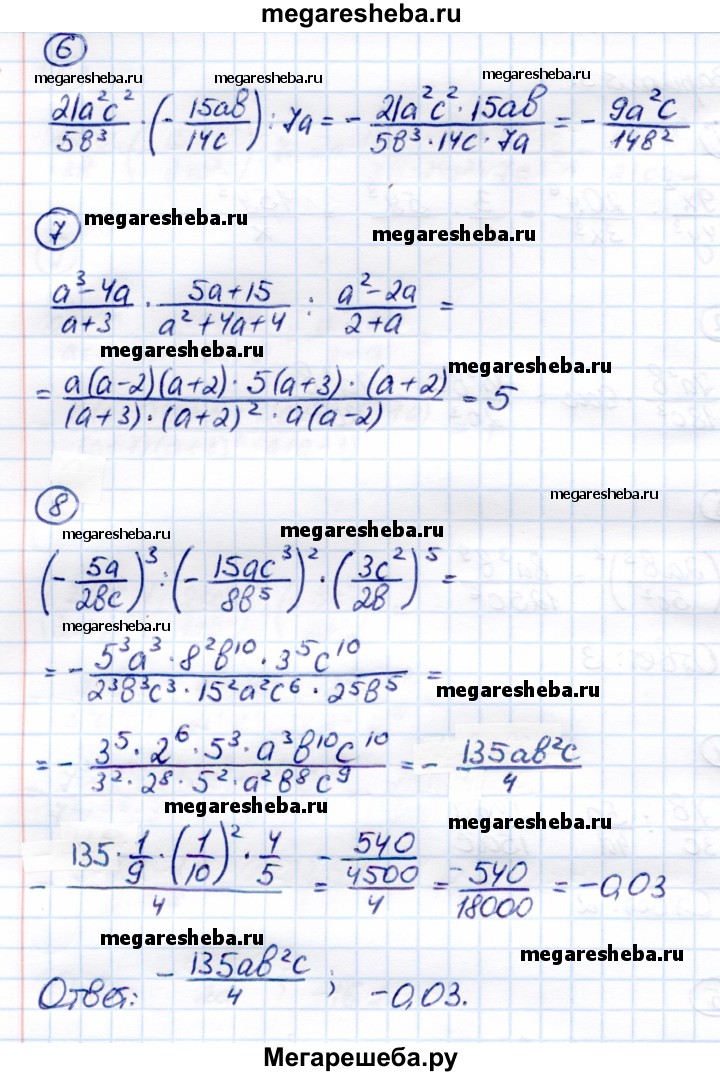 megaresheba.ru
6
megaresheba.ru megaresheba.ru megaresheba.ru
21a²c²/5в³ · (− 15aв/14c) : 7a = − 21a²c² · 15aв/5в³ · 14c · 7a = − 9a²c/14в²
7 megaresheba.ru megaresheba.ru
a³−4a/a+3 · 5a+15/a²+4a+4 : a²−2a/2+a =
megaresheba.ru megaresheba.ru
= a(a−2)(a+2) · 5(a+3) · (a+2)/(a+3) · (a+2)² · a(a−2) = 5
8 megaresheba.ru
megaresheba.ru megaresheba.ru
(− 5a/2вc)³ : (− 15ac³/8в⁵)² · (3c²/2в)⁵ =
megaresheba.ru
= − 5³a³ · 8²в¹⁰ · 3⁵c¹⁰/2³в³c³ · 15²a²c⁶ · 2⁵в⁵ =
megaresheba.ru
= − 3⁵ · 2⁶ · 5³ · a³в¹⁰c¹⁰/3² · 2⁸ · 5² · a²в⁸c⁹ = − 135aв²c/4
megaresheba.ru megaresheba.ru
− 135 · 1/9 · (1/10)² · 4/5/4 = −540/4500/4 = −540/18000 = −0,03
megaresheba.ru megaresheba.ru
Ответ: − 135aв²c/4 ; −0,03.
Мегарешеба.ру